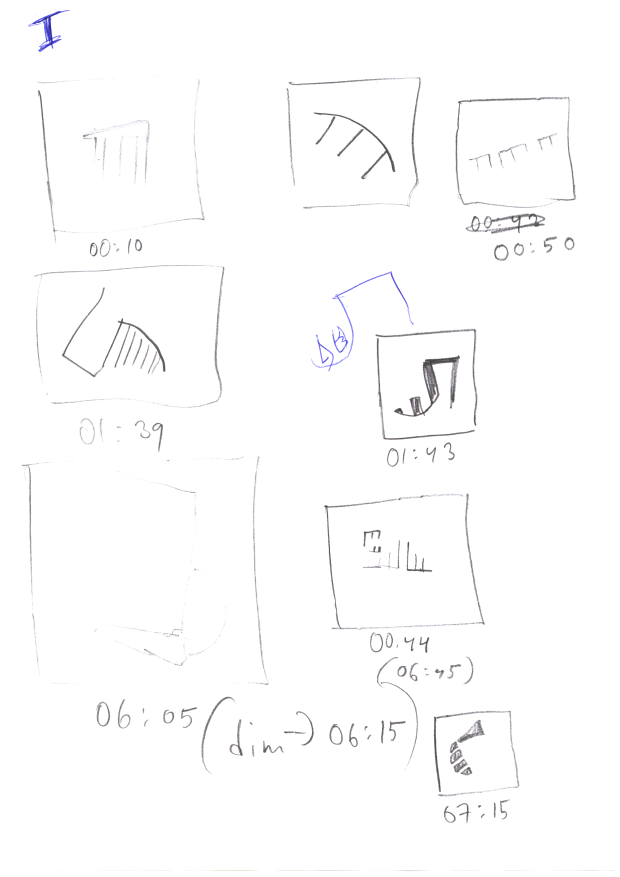 I
00:10
00:42
00:50
01:39
01:43
00.44
(06:45)
06:05 (dim→ 06:15)
07:15